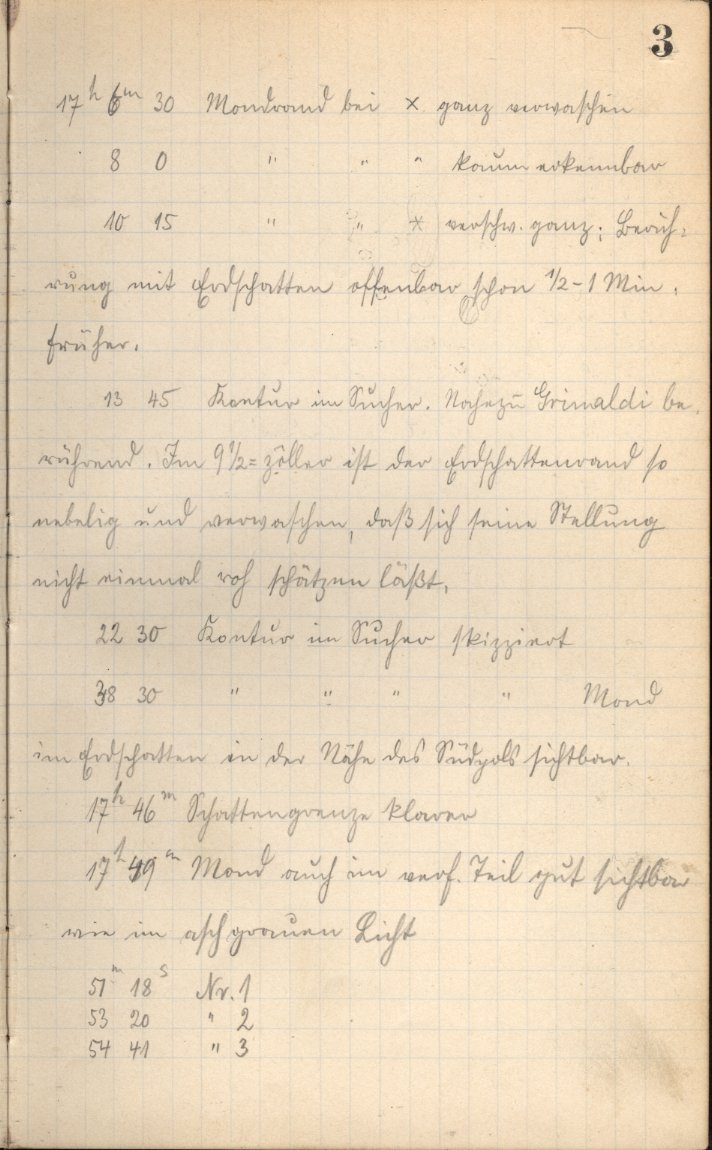 3
17h 6m 30 Mondrand bei × ganz verwaschen
8 0 " " " kaum erkennbar
10 15 " " × verschw. ganz; Berüh=
rung mit Erdschatten offenbar schon 1/2-1 Min.
früher.
13 45 Kontur im Sucher. Nahezu Grimaldi be=
rührend. Im 9 1/2=zöller ist der Erdschattenrand so
nebelig und verwaschen, daß sich seine Stellung
nicht einmal roh schätzen läßt.
22 30 Kontur im Sucher skizziert
38 30 " " " " Mond
im Erdschatten in der Nähe des Südpols sichtbar.
17h 46m Schattengrenze klarer
17h 49m Mond auch im verf. Teil gut sichtbar
wie im aschgrauen Licht
51m 18s Nr. 1
53 20 " 2
54 41 " 3